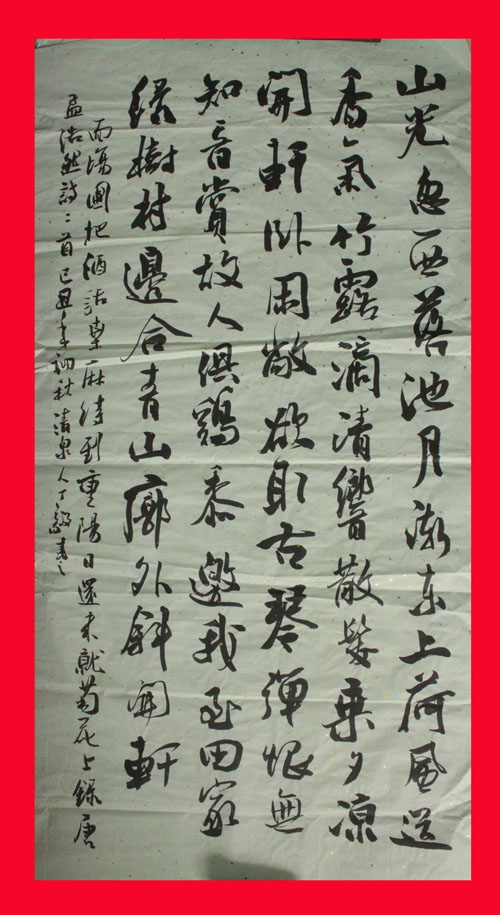 山光忽西落池月漸东上荷風送
香氣竹露滴清響散髮乘夕凉
開軒卧闲敞欲取古琴彈恨無
知音賞故人俱鷄黍邀我至田家
緑樹村邊合青山廓外斜開軒
面場圃把酒話桑麻待到重陽日還來就菊花上録唐
孟浩然詩二首己丑年初秋清泉人丁書之